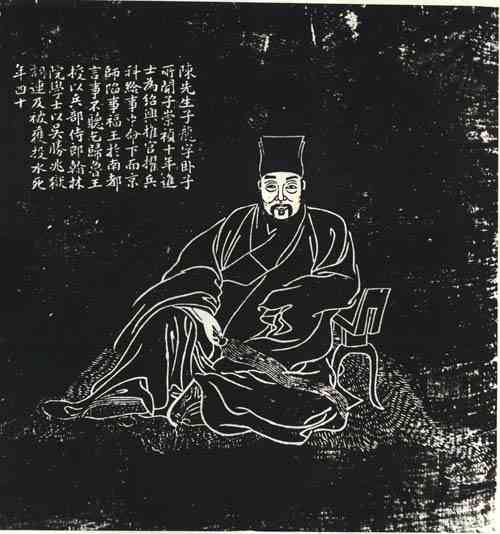 陳先生子龍字卧子
所聞子崇禎十年進
士為紹興推官擢兵
科給事中命下而京
師陷事福王於南都
言事不聽乞歸魯王
授以兵部侍郎翰林
院學士以吳勝兆獄
詞連及被獲投水死
年四十